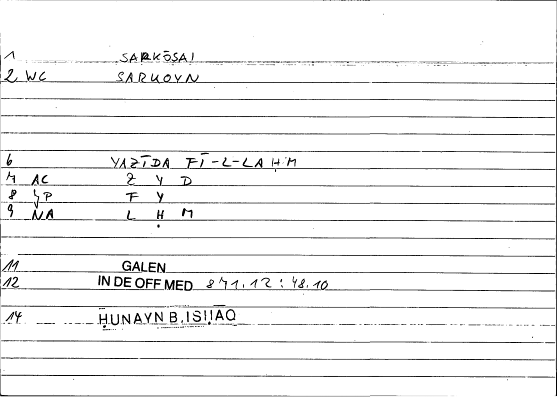 1 SARKŌSAI
2 WC SARKOYN
6 YAZĪDA FĪ-L-LAḤM
7 AC Z Y D
8 ЏP F Y
9 NA L Ḥ M
11 GALEN
12 IN DE OFF MED 871.12 : 48.10
14 ḤUNAYN B. ISḤĀQ